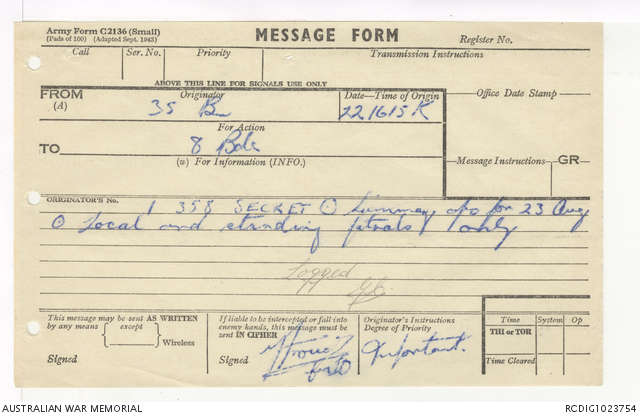 Army Form C2136 (Small)
(Pads of 100) (Adapted Sept. 1943)
MESSAGE FORM
Register No.
Call Ser. No. Priority Transmission Instructions
ABOVE THIS LINE FOR SIGNALS USE ONLY
FROM
(A)
Originator
35 Bn
Date—Time of Origin
221615K
Office Date Stamp
TO
For Action
8 Bde
(w) For Information (INFO.)
Message Instructions GR
ORIGINATOR'S No.
358 SECRET ⊙ Summary ops for 23 Aug
⊙ Local and standing patrols only
Logged
This message may be sent AS WRITTEN
by any means ( except ) Wireless
Signed
If liable to be intercepted or fall into
enemy hands, this message must be
sent IN CIPHER
Signed
Originator's Instructions
Degree of Priority
Important.
Time System Op
THI or TOR
Time Cleared
AUSTRALIAN WAR MEMORIAL
RCDIG1023754